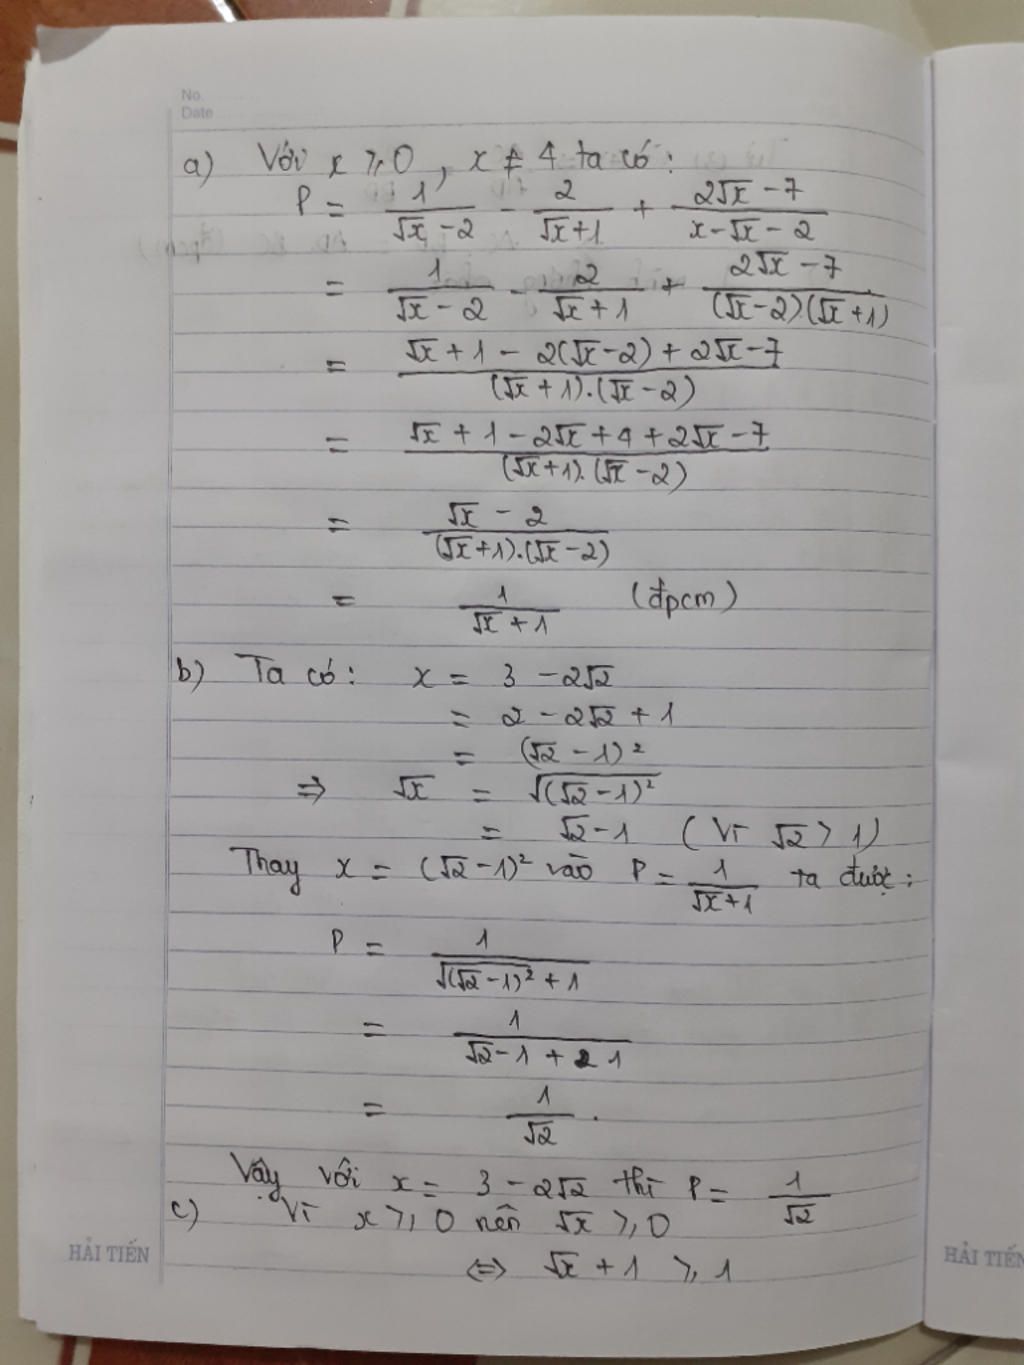 No.
Date
a) Với x ⩾ 0, x ≠ 4 ta có:
P = 1/(√x − 2) − 2/(√x + 1) + (2√x − 7)/(x − √x − 2)
= 1/(√x − 2) − 2/(√x + 1) + (2√x − 7)/((√x − 2).(√x + 1))
= (√x + 1 − 2(√x − 2) + 2√x − 7)/((√x + 1).(√x − 2))
= (√x + 1 − 2√x + 4 + 2√x − 7)/((√x + 1).(√x − 2))
= (√x − 2)/((√x + 1).(√x − 2))
= 1/(√x + 1) (đpcm)
b) Ta có: x = 3 − 2√2
= 2 − 2√2 + 1
= (√2 − 1)²
⇒ √x = √((√2 − 1)²)
= √2 − 1 (Vì √2 > 1)
Thay x = (√2 − 1)² vào P = 1/(√x + 1) ta được:
P = 1/(√((√2 − 1)²) + 1)
= 1/(√2 − 1 + 1)
= 1/√2 .
Vậy với x = 3 − 2√2 thì P = 1/√2
c) Vì x ⩾ 0 nên √x ⩾ 0
⇔ √x + 1 ⩾ 1
HẢI TIẾN
HẢI TIẾN